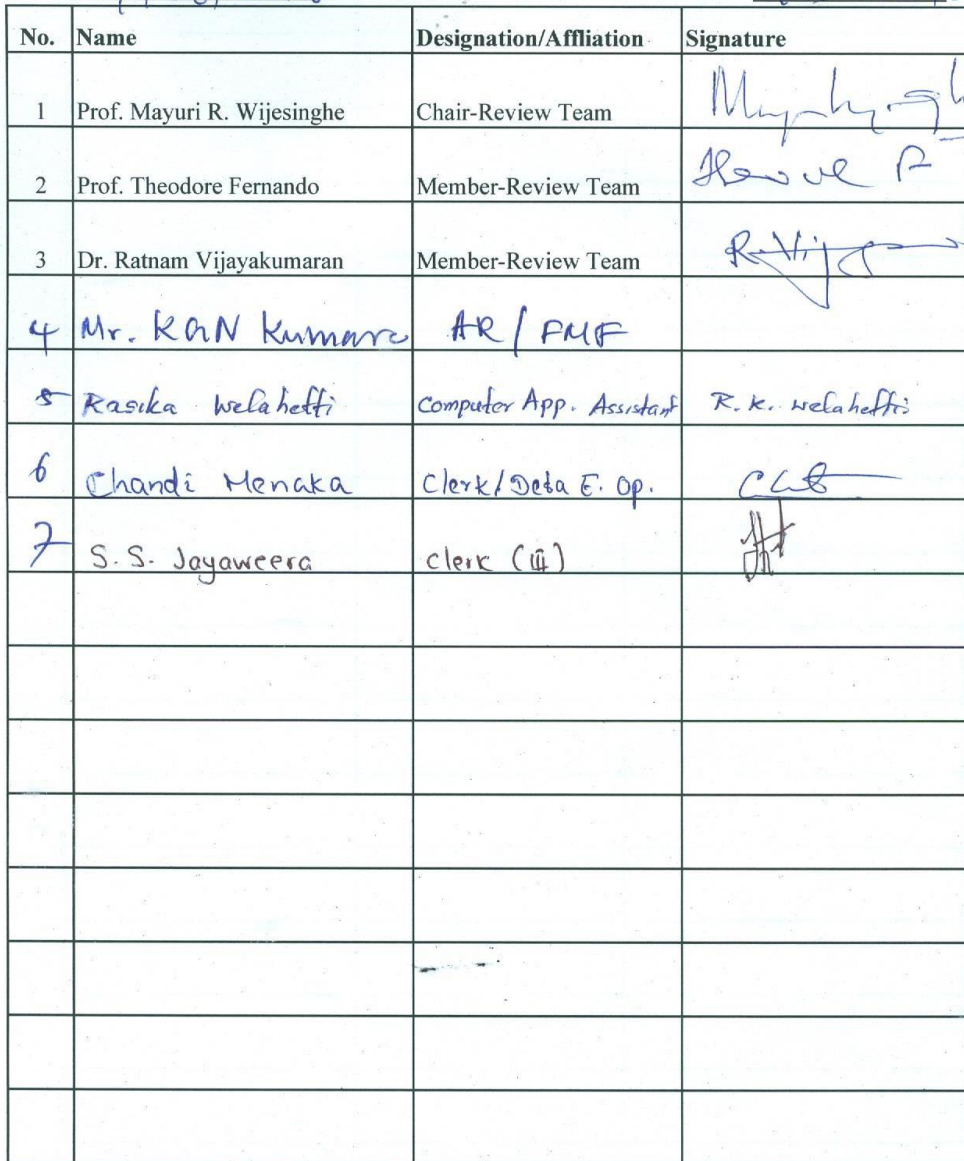 No. Name Designation/Affliation Signature
1 Prof. Mayuri R. Wijesinghe Chair-Review Team
2 Prof. Theodore Fernando Member-Review Team
3 Dr. Ratnam Vijayakumaran Member-Review Team
4 Mr. KGN Kumara AR / FMF
5 Rasika Welahetti Computer App. Assistant R. K. Welahetti
6 Chandi Menaka Clerk/Data E. Op.
7 S. S. Jayaweera Clerk (III)